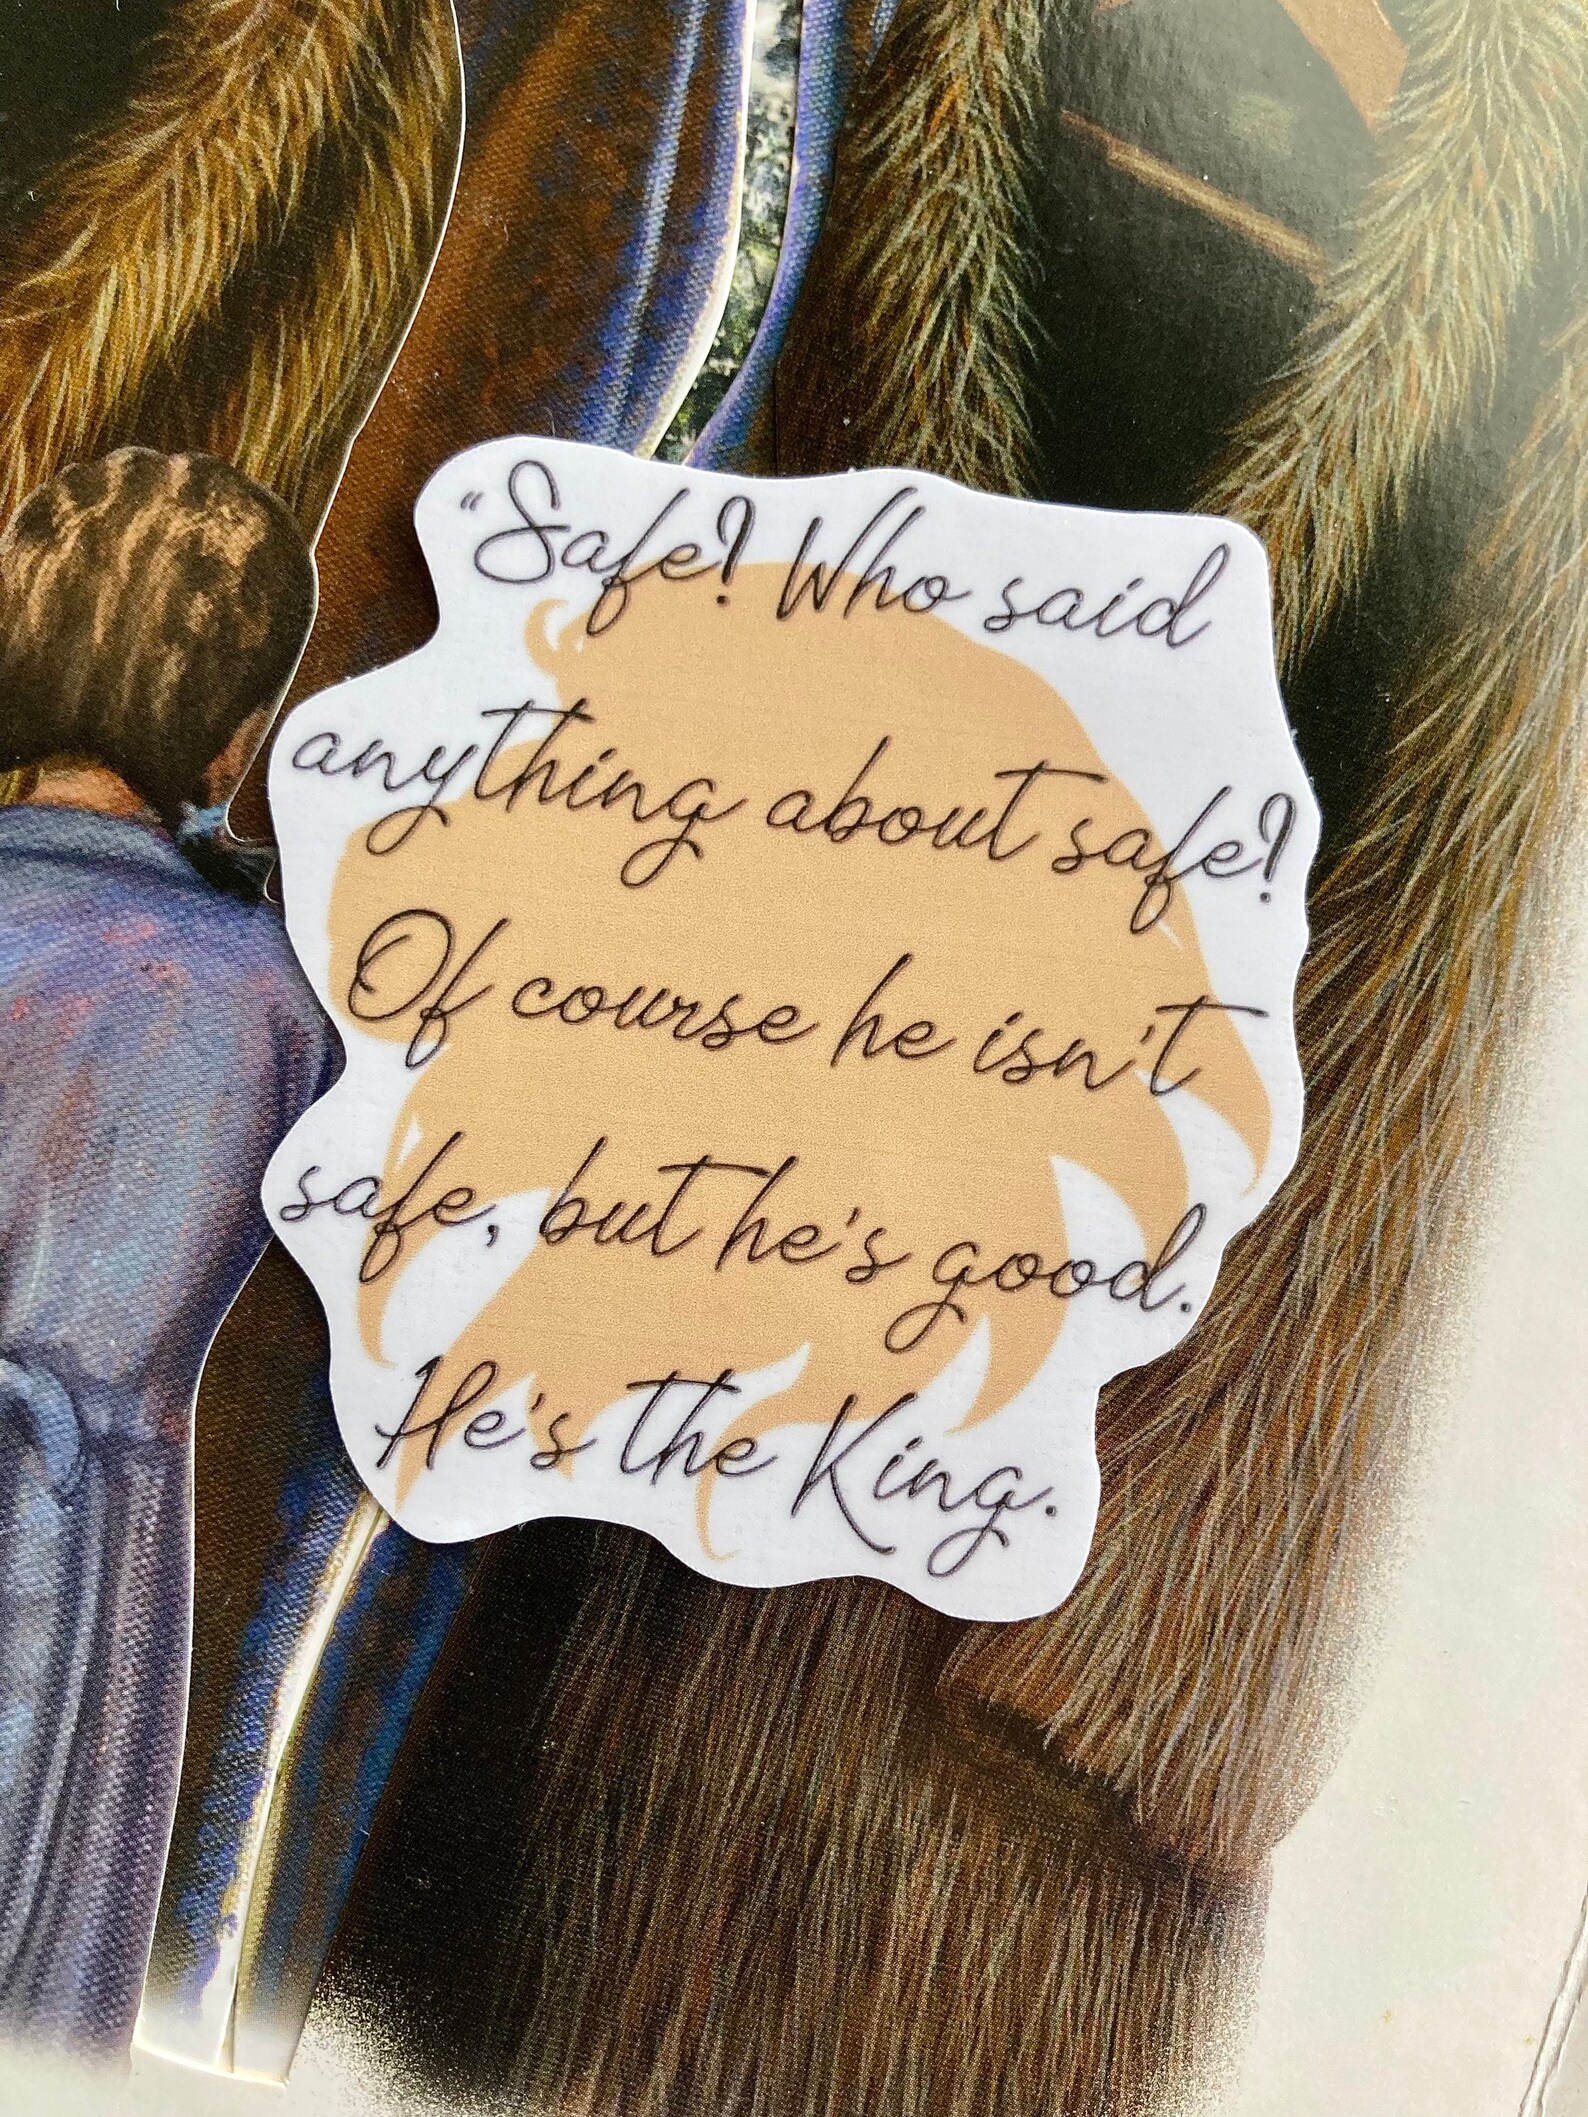 "Safe? Who said
anything about safe?
Of course he isn't
safe, but he's good.
He's the King.